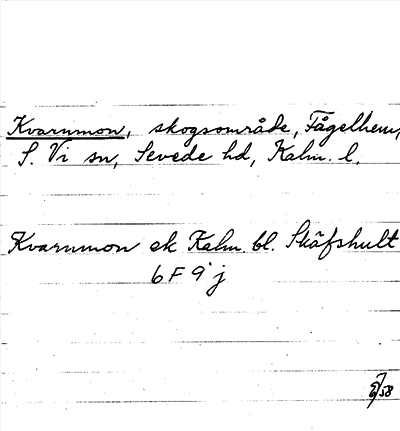 Kvarnmon, skogsområde, Fågelhem,
S. Vi sn, Sevede hd, Kalm. l.
Kvarnmon ek Kalm. bl. Skäfshult
6 F 9 j
58